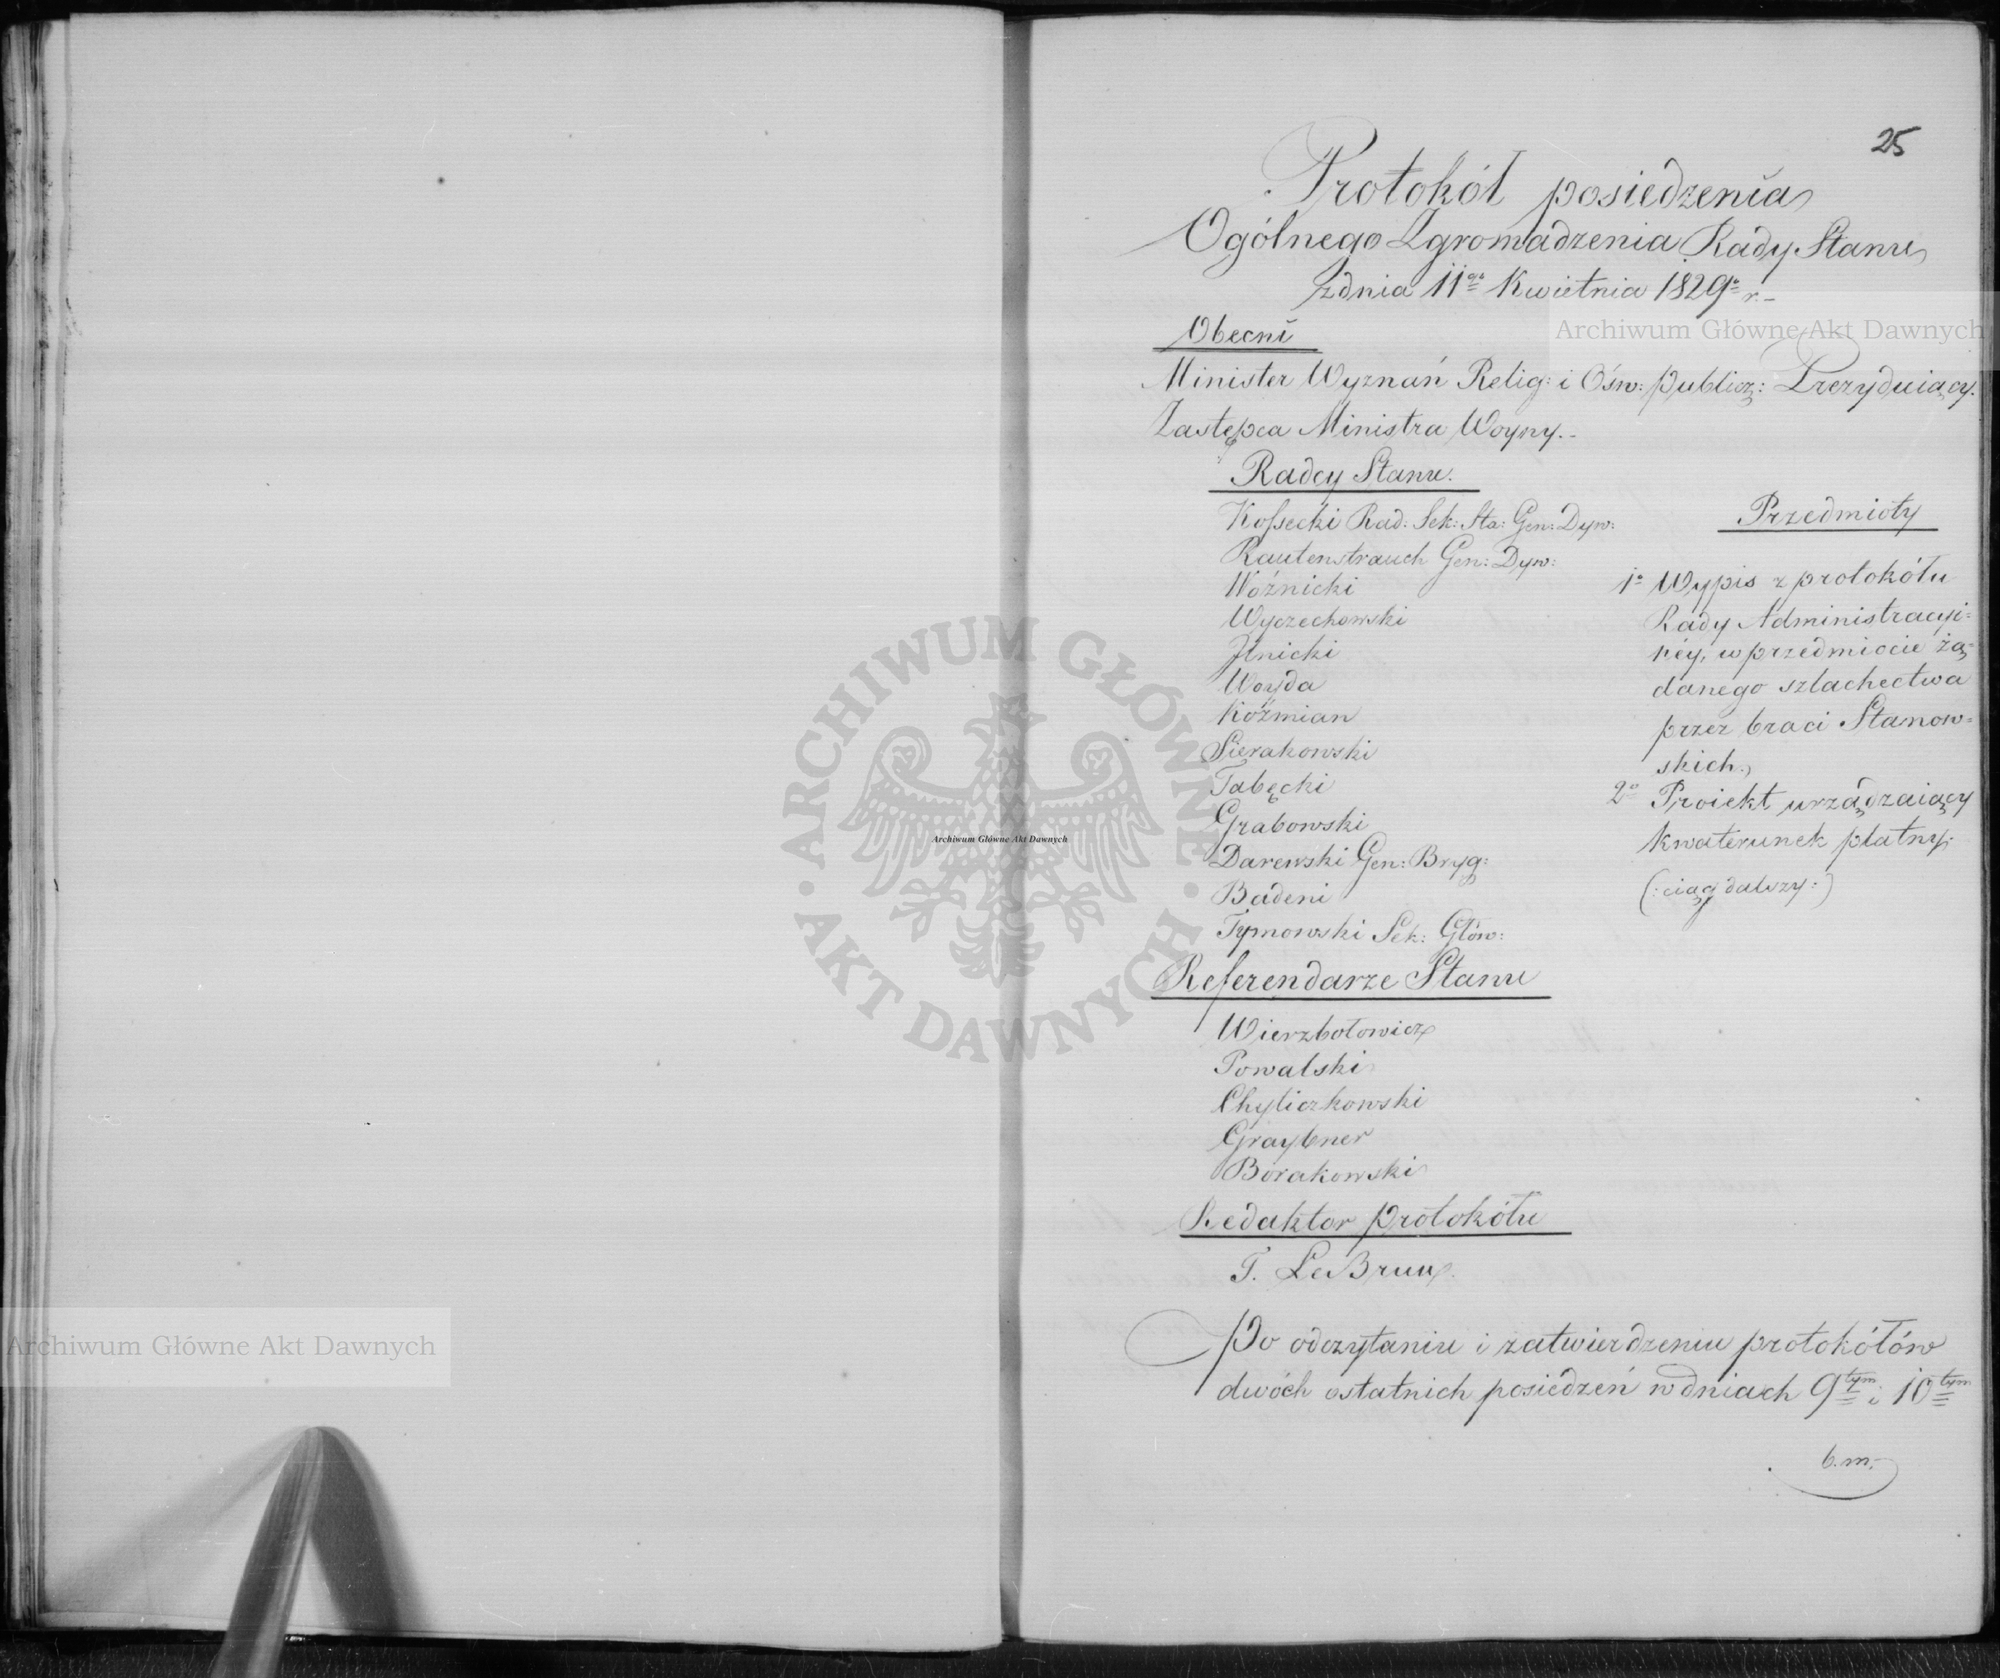 25
Protokół posiedzenia
Ogólnego Zgromadzenia Rady Stanu
z dnia 11go Kwietnia 1829o r.-
Obecni
Minister Wyznań Relig: i Ośw: publicz: Prezyduiący.
Zastępca Ministra Woyny.-
Radcy Stanu.
Kossecki Rad: Sek: Sta: Gen: Dyw:
Rautenstrauch Gen: Dyw:
Woźnicki
Wyczechowski
Jlnicki
Woyda
Koźmian
Sierakowski
Tabęcki
Grabowski
Darewski Gen: Bryg:
Badeni
Tymowski Sek: Głów:
Przedmioty
1o Wypis z protokółu
Rady Administracyi=
néy, w przedmiocie żą=
danego szlachectwa
przez braci Stanow=
skich.
2o Proiekt urządzaiący
kwaterunek płatny.
(: ciąg dalszy :)
Referendarze Stanu
Wierzbołowicz
Powalski
Chyliczkowski
Graybner
Borakowski
Redaktor protokółu
T. Le Brun.
Po odczytaniu i zatwierdzeniu protokółów
dwóch ostatnich posiedzeń w dniach 9tym i 10tym
b.m.-
Archiwum Główne Akt Dawnych
Archiwum Główne Akt Dawnych
Archiwum Główne Akt Dawnych
ARCHIWUM GŁÓWNE · AKT DAWNYCH ·